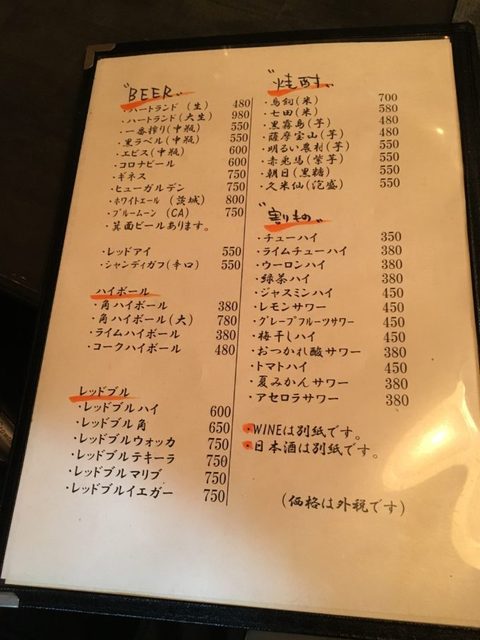 "BEER"
・ハートランド（生） 480
・ハートランド（大生） 980
・一番搾り（中瓶） 550
・黒ラベル（中瓶） 550
・エビス（中瓶） 600
・コロナビール 600
・ギネス 750
・ヒューガルデン 750
・ホワイトエール（茨城） 800
・ブルームーン（CA） 750
・箕面ビールあります。
・レッドアイ 550
・シャンディガフ（辛口） 550
ハイボール
・角ハイボール 380
・角ハイボール（大） 780
・ライムハイボール 380
・コークハイボール 480
レッドブル
・レッドブルハイ 600
・レッドブル角 650
・レッドブルウォッカ 750
・レッドブルテキーラ 750
・レッドブルマリブ 750
・レッドブルイエガー 750
・鳥飼（米） 700
・七田（米） 580
・黒霧島（芋） 480
・薩摩宝山（芋） 480
・明るい農村（芋） 550
・赤兎馬（紫芋） 550
・朝日（黒糖） 550
・久米仙（泡盛） 550
"割りもの"
・チューハイ 350
・ライムチューハイ 380
・ウーロンハイ 380
・緑茶ハイ 380
・ジャスミンハイ 450
・レモンサワー 380
・グレープフルーツサワー 450
・梅干しハイ 450
・おつかれ酸サワー 380
・トマトハイ 450
・夏みかんサワー 380
・アセロラサワー 380
・WINEは別紙です。
・日本酒は別紙です。
（価格は外税です）